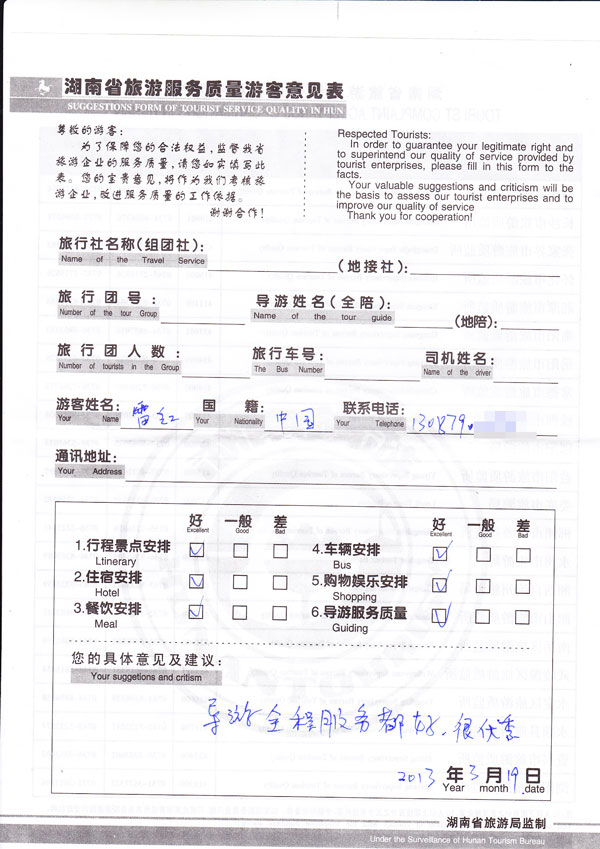 湖南省旅游服务质量游客意见表
SUGGESTIONS FORM OF TOURIST SERVICE QUALITY IN HUN
尊敬的游客：
为了保障您的合法权益，监督我省
旅游企业的服务质量，请您如实填写此
表。您的宝贵意见，将作为我们考核旅
游企业，改进服务质量的工作依据。
谢谢合作！
Respected Tourists:
In order to guarantee your legitimate right and
to superintend our quality of service provided by
tourist enterprises, please fill in this form to the
facts.
Your valuable suggestions and criticism will be
the basis to assess our tourist enterprises and to
improve our quality of service
Thank you for cooperation!
旅行社名称(组团社)： (地接社)：
Name of the Travel Service
旅行团号： 导游姓名(全陪)： (地陪)：
Number of the tour Group Name of the tour guide
旅行团人数： 旅行车号： 司机姓名：
Number of tourists in the Group The Bus Number Name of the driver
游客姓名： 雷红 国籍： 中国 联系电话： 130879
Your Name Your Nationality Your Telephone
通讯地址：
Your Address
好 一般 差 好 一般 差
Excellent Good Bad Excellent Good Bad
1.行程景点安排 4.车辆安排
Ltinerary Bus
2.住宿安排 5.购物娱乐安排
Hotel Shopping
3.餐饮安排 6.导游服务质量
Meal Guiding
您的具体意见及建议：
Your suggetions and critism
导游全程服务都好，很优秀
2013 年 3 月 19 日
Year month date
湖南省旅游局监制
Under the Surveillance of Hunan Tourism Bureau